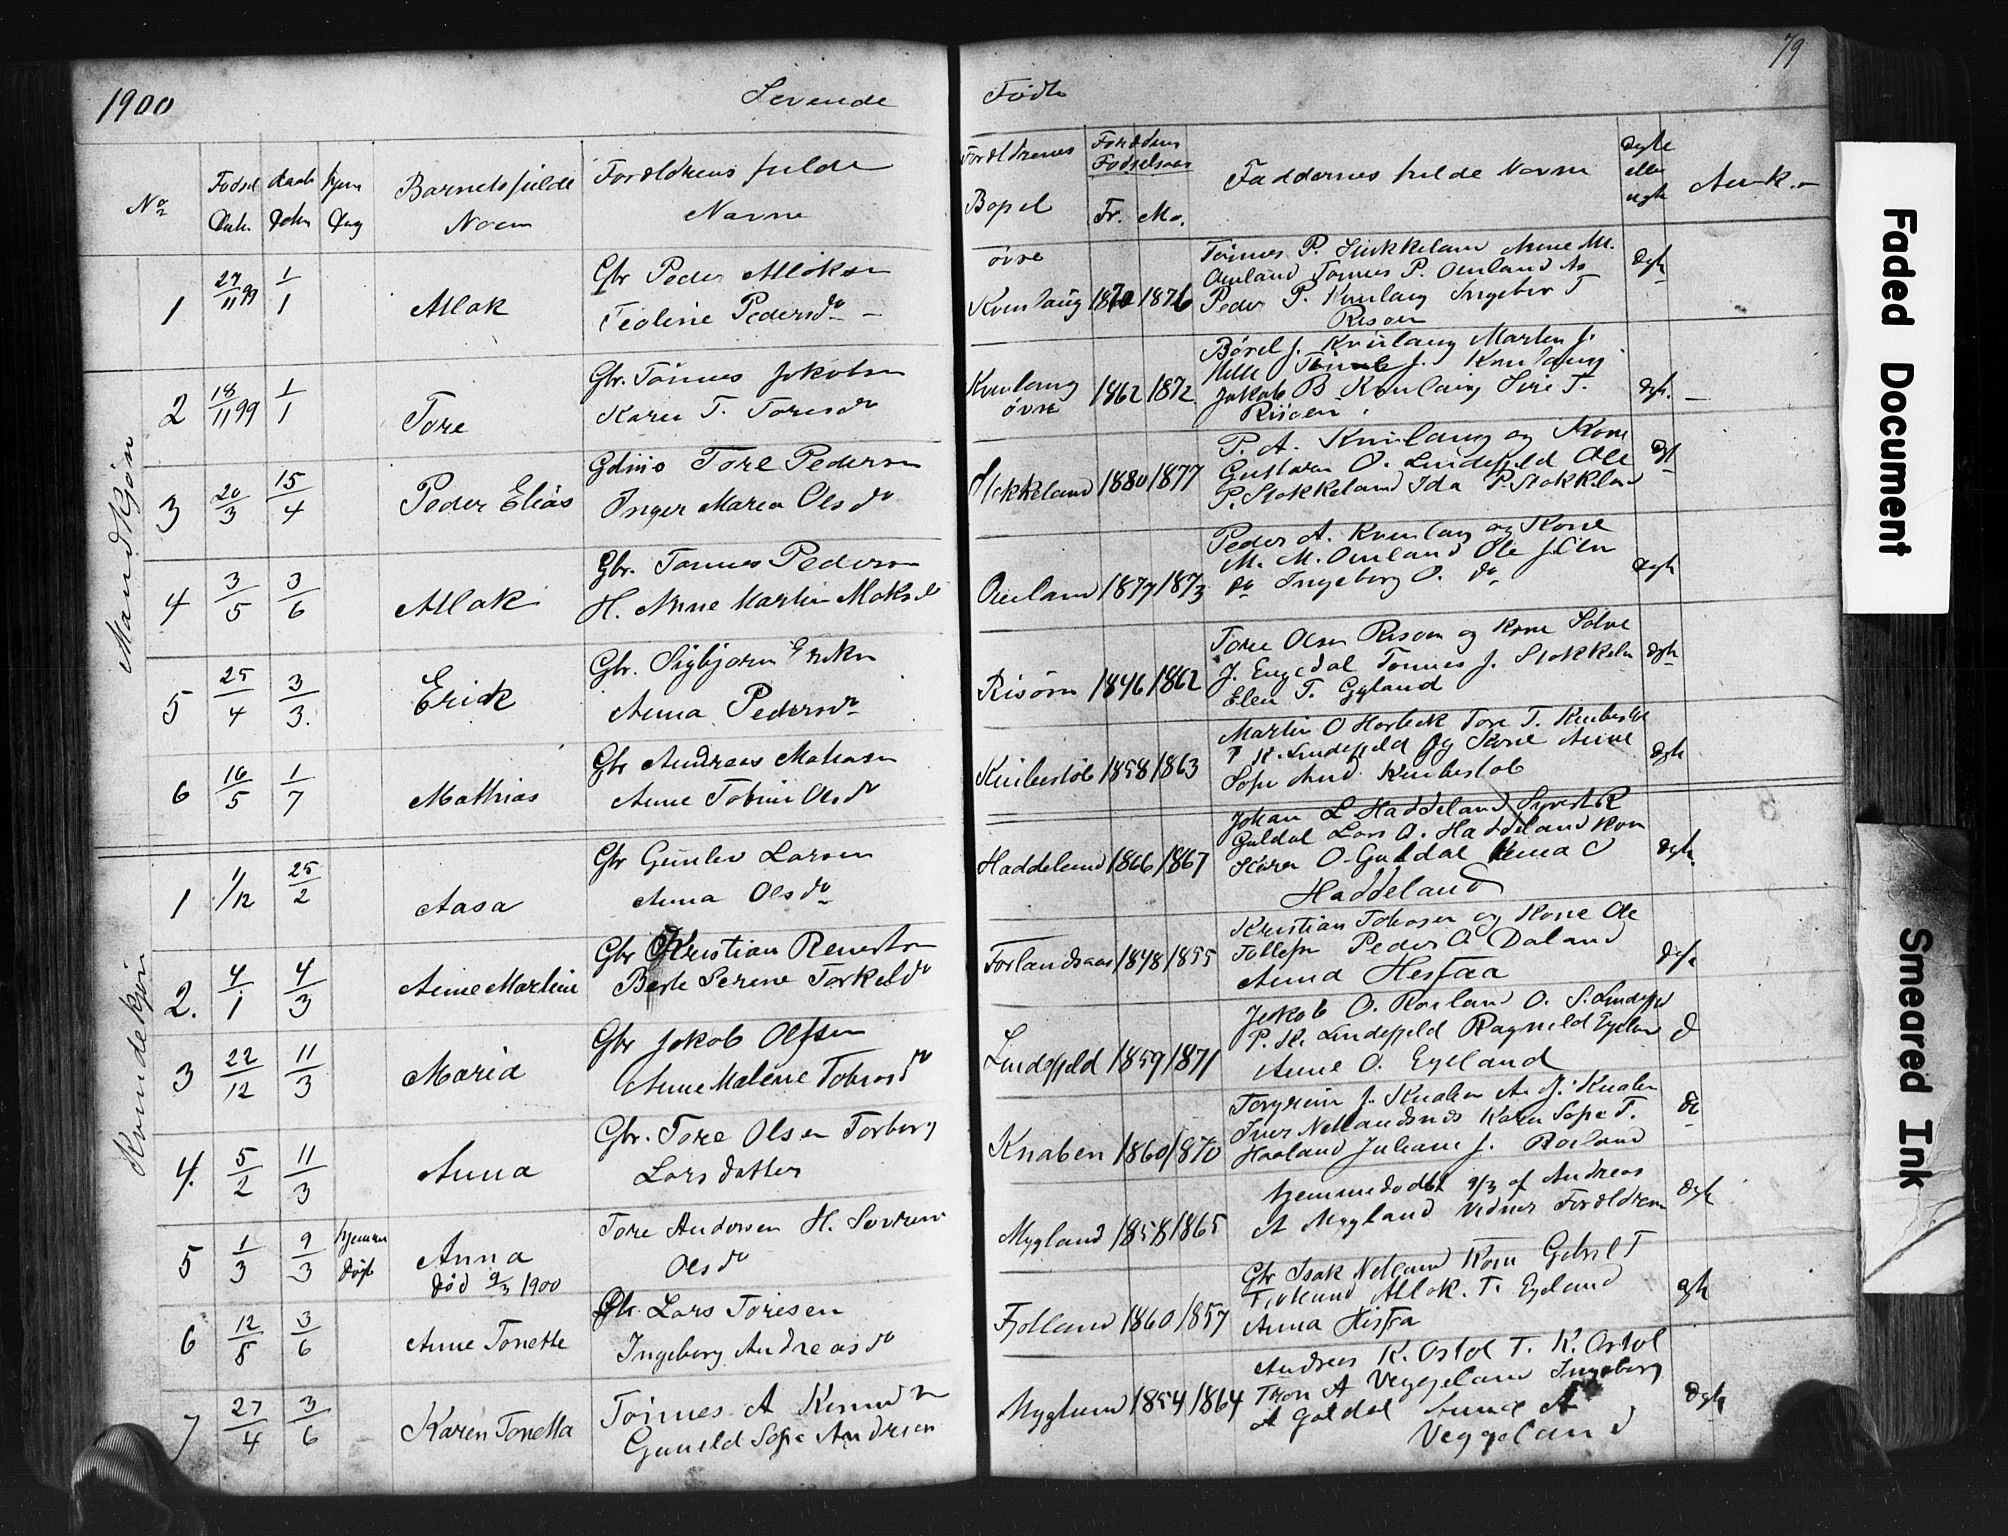 1900 Levende Fødte 79
No Fødsel Daab hjem Barnets fulde Forældrens fulde
Dato Dato Dag Navn Navne
Forældrenes Forældrens Fødselsaar Faddernes fulde Navne ægte eller uægte Anmk.
Bopel Fr. Mo.
Mandkjøn
1 27/11 99 1/1 Atlak Gbr Peder Atlaksen
Teoline Pedersdr
øvre Kvinlaug 1870 1876
Tønnes P. Stokkeland Anne M.
Omland Tønnes P. Omland
Peder P. Kvinlaug Ingebor T
Risøen
ægte
2 18/11 99 1/1 Tore Gbr. Tønnes Jakobsen
Karen T. Toresdr
Kvinlaug øvre 1862 1872
Børel J. Kvinlaug Martin J.
Helle J. Kvinlaug
Jakob B Kvinlaug Sire T.
Risøen
ægt.
3 20/3 15/4 Peder Elias Gdms Tore Pedersen
Inger Maria Olsdr
Stokkeland 1880 1877
P. A. Kvinlaug og Kone
O. Lindefjeld Ole
P. Stokkeland Ida P. Stokkeland
4 3/5 3/6 Atlak Gbr. Tønnes Pedersen
H. Anne Martin
Omland 1877 1873
Peder A. Kvinlaug og Kone
M. M. Omland Ole J Olsen
do Ingeborg O. do
ægte
5 25/4 3/3. Erick Gbr. Sigbjørn Eriksen
Anna Pedersdr
Risøen 1846 1862
Tore Olsen Risøen og Kone Solve
J. Engedal Tønnes J. Stokkeln
Elen T. Gyland
ægte
6 16/5 1/7 Mathias Gbr Andreas
Anne Tobine Olsdr
Knibestøl 1858 1863
Martin O Tore T. Knibestøl
P K. Lindefjeld og Kone Anne
Sofie And. Knibestøl
ægte
Kvindekjøn
1 1/12 25/2 Aasa Gbr Gunlev Larsen
Anna Olsdr
Haddeland 1866 1867
Johan L Haddeland R
Guldal Lars O. Haddeland Kon
Karen O. Galdal Anna O
Haddeland
ægte.
2. 4/1 4/3 Anne Martine Gbr Kristian
Berte Serine Torkelsdr
Forlandsaas 1848 1855
Kristian Tobiasen og Kone Ole
Tollefsn Peder O Daland
Anna Hesfaa
ægte
3 22/12 11/3 Maria Gbr Jakob Olsen
Anne Malene Tobiasdr
Lindefjeld 1859 1871
Jakob O. Roiland O. S. Lindefjel
P. K. Lindefjeld Ragnild
Anne O. Egeland
4. 5/2 11/3 Anna Gbr. Tore Olsen Torborg
Larsdatter
Knaben 1860 1870
Torgrim J. Knaben A. J. Knaben
Iver Netlandsnes Karen Sofie T.
Haaland Juliane J. Roiland
do
5 1/3 9/3 hjemme døbt Anna Tore Andersen H. Severine
død 9/3 1900 Olsdr
Mygland 1858 1865
hjemmedøbt 9/3 af Andreas
A Mygland Vidner Forældrene
ægte
6 12/5 3/6 Anne Tonette Gbr. Lars Toresen
Ingeborg Andreasdr
Fjotland 1860 1857
Gbr Isak Netland Kone Gabriel T
Fjotland Atlak. T. Egeland
Anna Hisfaa
ægte
7 27/4 3/6 Karen Tonetta Tønnes A
Gunild Sofie Andersen
Mygland 1854 1864
Andreas K. Ostol T. K. Ostol
A Veggeland Ingeborg
A Galdal A
Veggeland
ægte
Faded Document
Smeared Ink